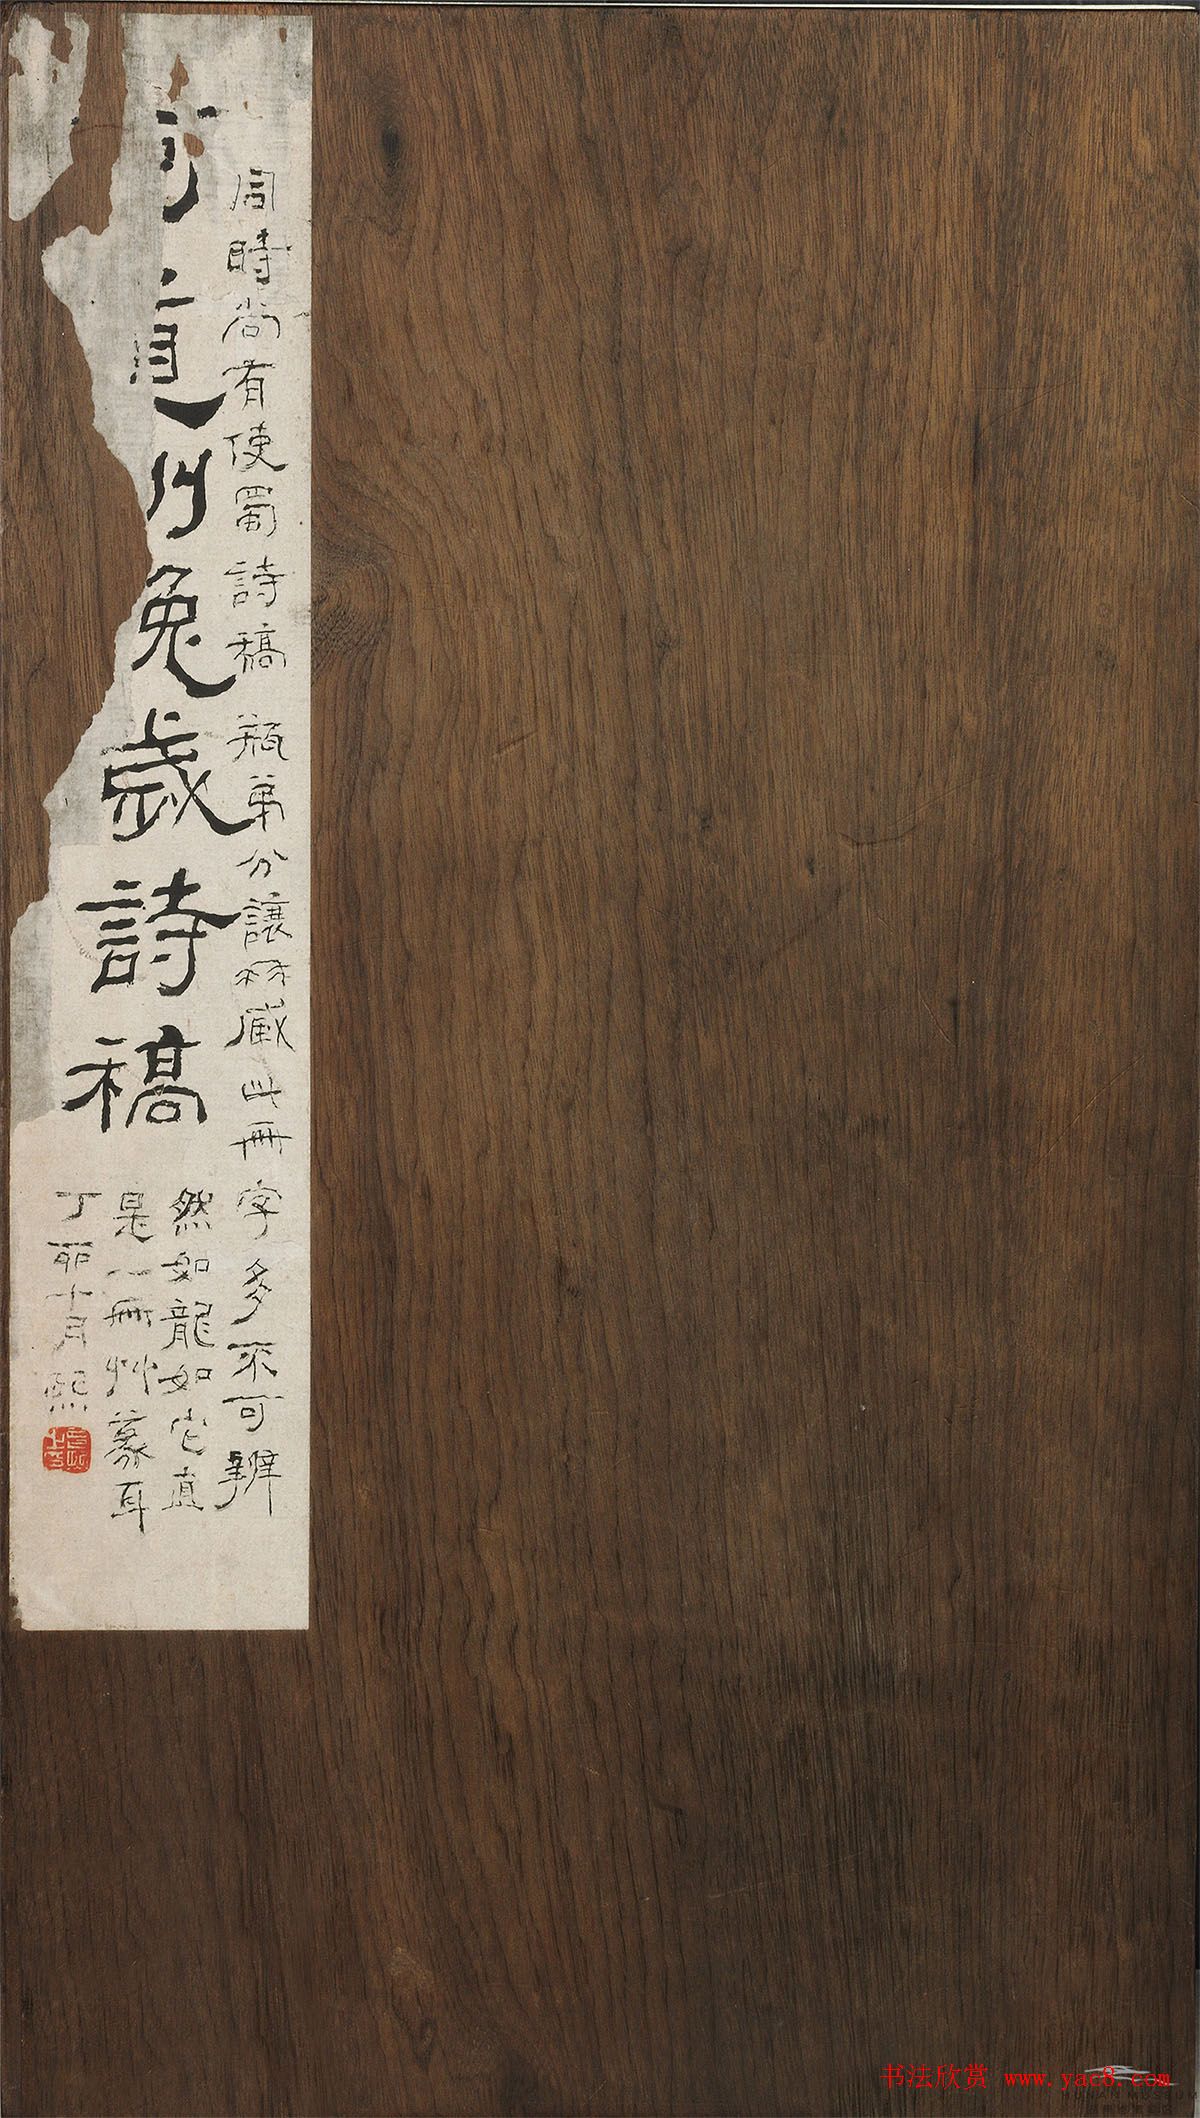 同時尚有使蜀詩稿 瓶弟分讓藏此冊字多不可辨
道州兔歲詩稿
然如龍如它直
是一冊艸篆耳
丁丣十月熙
书法欣赏 www.yac8.com
HUNAN MUSEUM